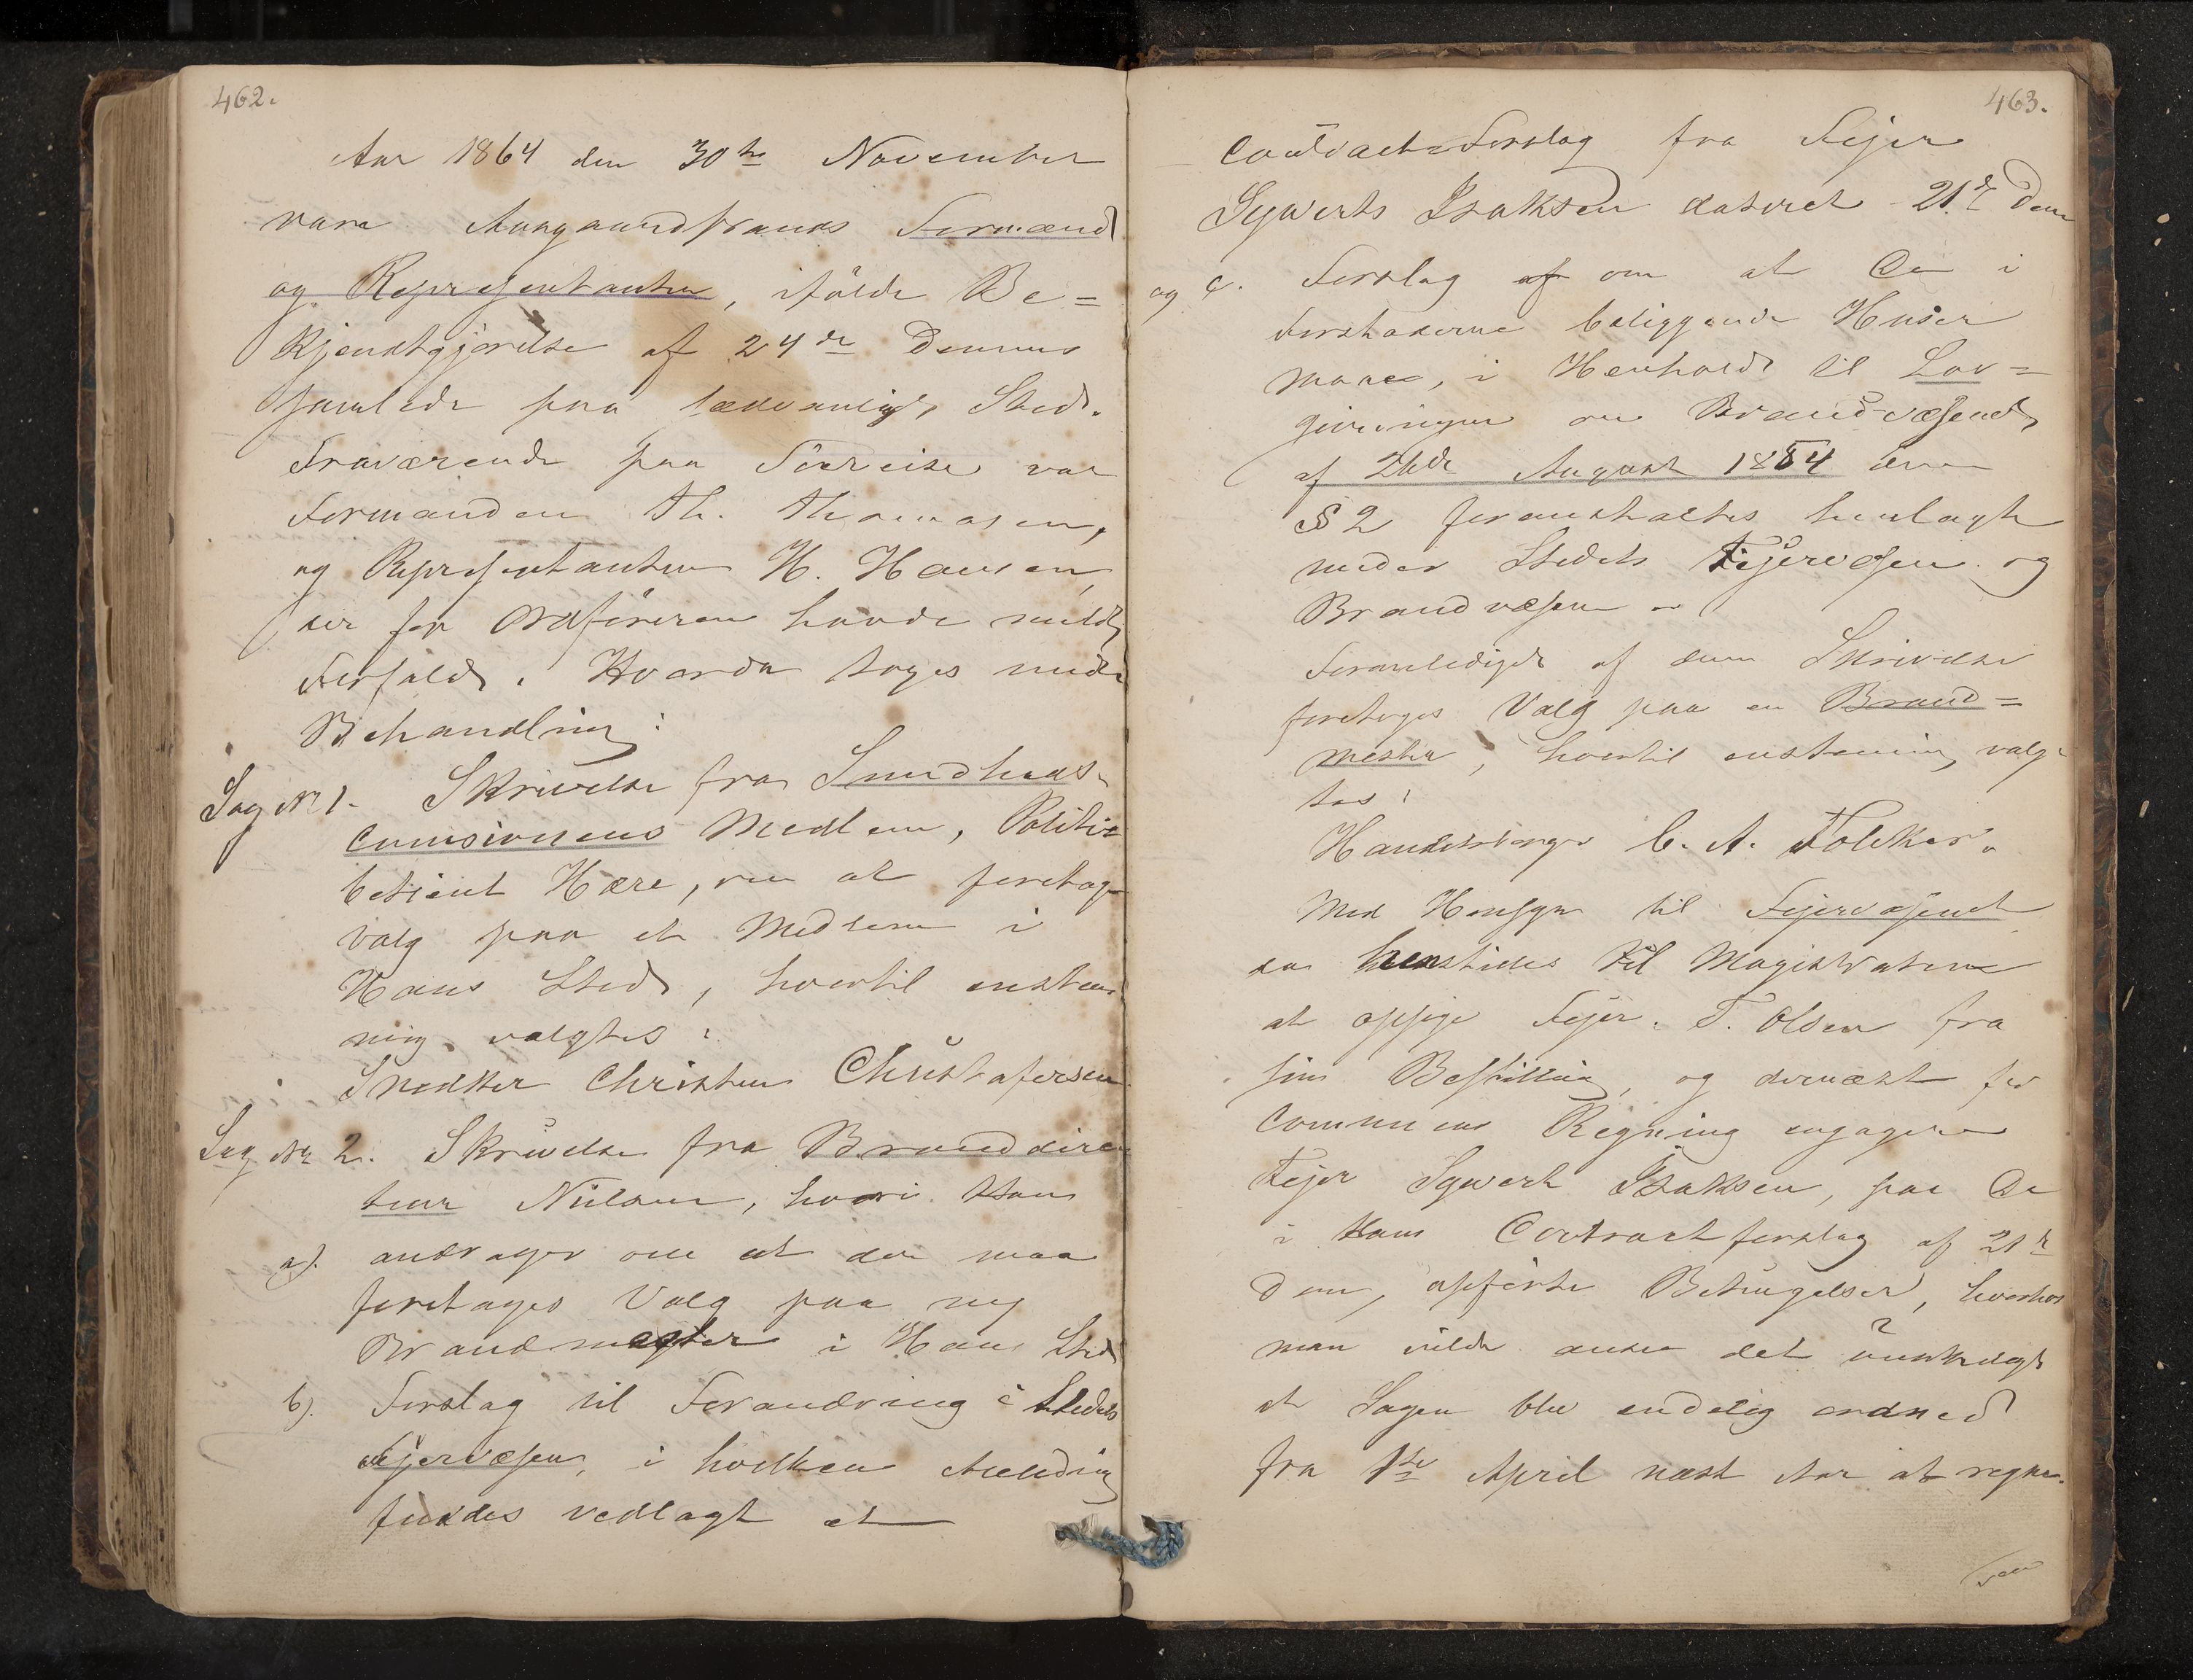 462.
Aar 1864 den 30te November
vare Aasgaardstrands Formænd
og Repræsentanter, ifølge Be=
kjendtgjørelse af 24de Dennes
samlede paa sædvanligt Sted.
Fraværende paa Söereise var
Formanden Th. Thomasen,
og Repræsentanten H. Hansen,
der for Ordføreren havde meldt
Forfald. Hvorda toges under
Behandling:
Sag No 1. Skrivelse fra Sundheds-
comisionens Medlem, Politie
betjent Hære, om at foretage
Valg paa et Medlem i
Hans Sted, hvortil enstem
mig valgtes:
Snedker Christen Christofersen
Sag No 2. Skrivelse fra Branddirec
teur Nielsen, hvori Han
a). andrager om at der maa
foretages Valg paa ny
Brandmester i Hans Sted
b). Forslag til Forandring i Stedets
Fejervæsen, i hvilken Anledning
fandtes vedlagt et
463.
Contract-Forslag fra Fejer
Sywerts Isaksen dateret 21de Dem
og c. Forslag af om at De i
Forstæderne beliggende Huser
maae, i Henhold til Lov=
givningen om Brandvæsenet
af 26de August 1854 dens
§ 2 foranstaltes henlagt
under Stedets Fejervæsen og
Brandvæsen -
Foranlediget af denne Skrivelse
foretoges Valg paa en Brand=
mester, hvortil enstemmig valg-
tes:
Handelsborger C. A. Folcker.
Med Hensyn til Fejervæsenet
da henstilles til Magistraten
at opsige Fejer T. Olsen fra
sin Bestilling, og dernæst for
Communens Regning engagere
Fejer Sywert Isaksen, paa De
i Hans Contractforslag af 21de
Dem, opførte Betingelser, hvorhos
man vilde anse det ønskeligt
at Sagen blev endelig ordned
fra 1ste April næst Aar at regne.